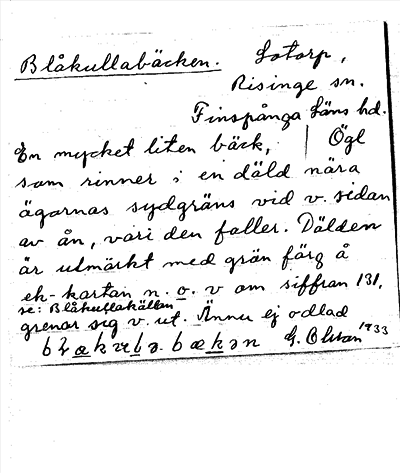 Blåkullabäcken. Lotorp,
Risinge sn.
Finspånga Läns hd.
En mycket liten bäck, Ögl
som rinner i en däld nära
ägornas sydgräns vid v. sidan
av ån, vari den faller. Dälden
är utmärkt med grön färg å
ek-kartan n. o. v om siffran 131,
se: Blåkullakällan
grenar sig v. ut. Ännu ej odlad
G. Olson 1933